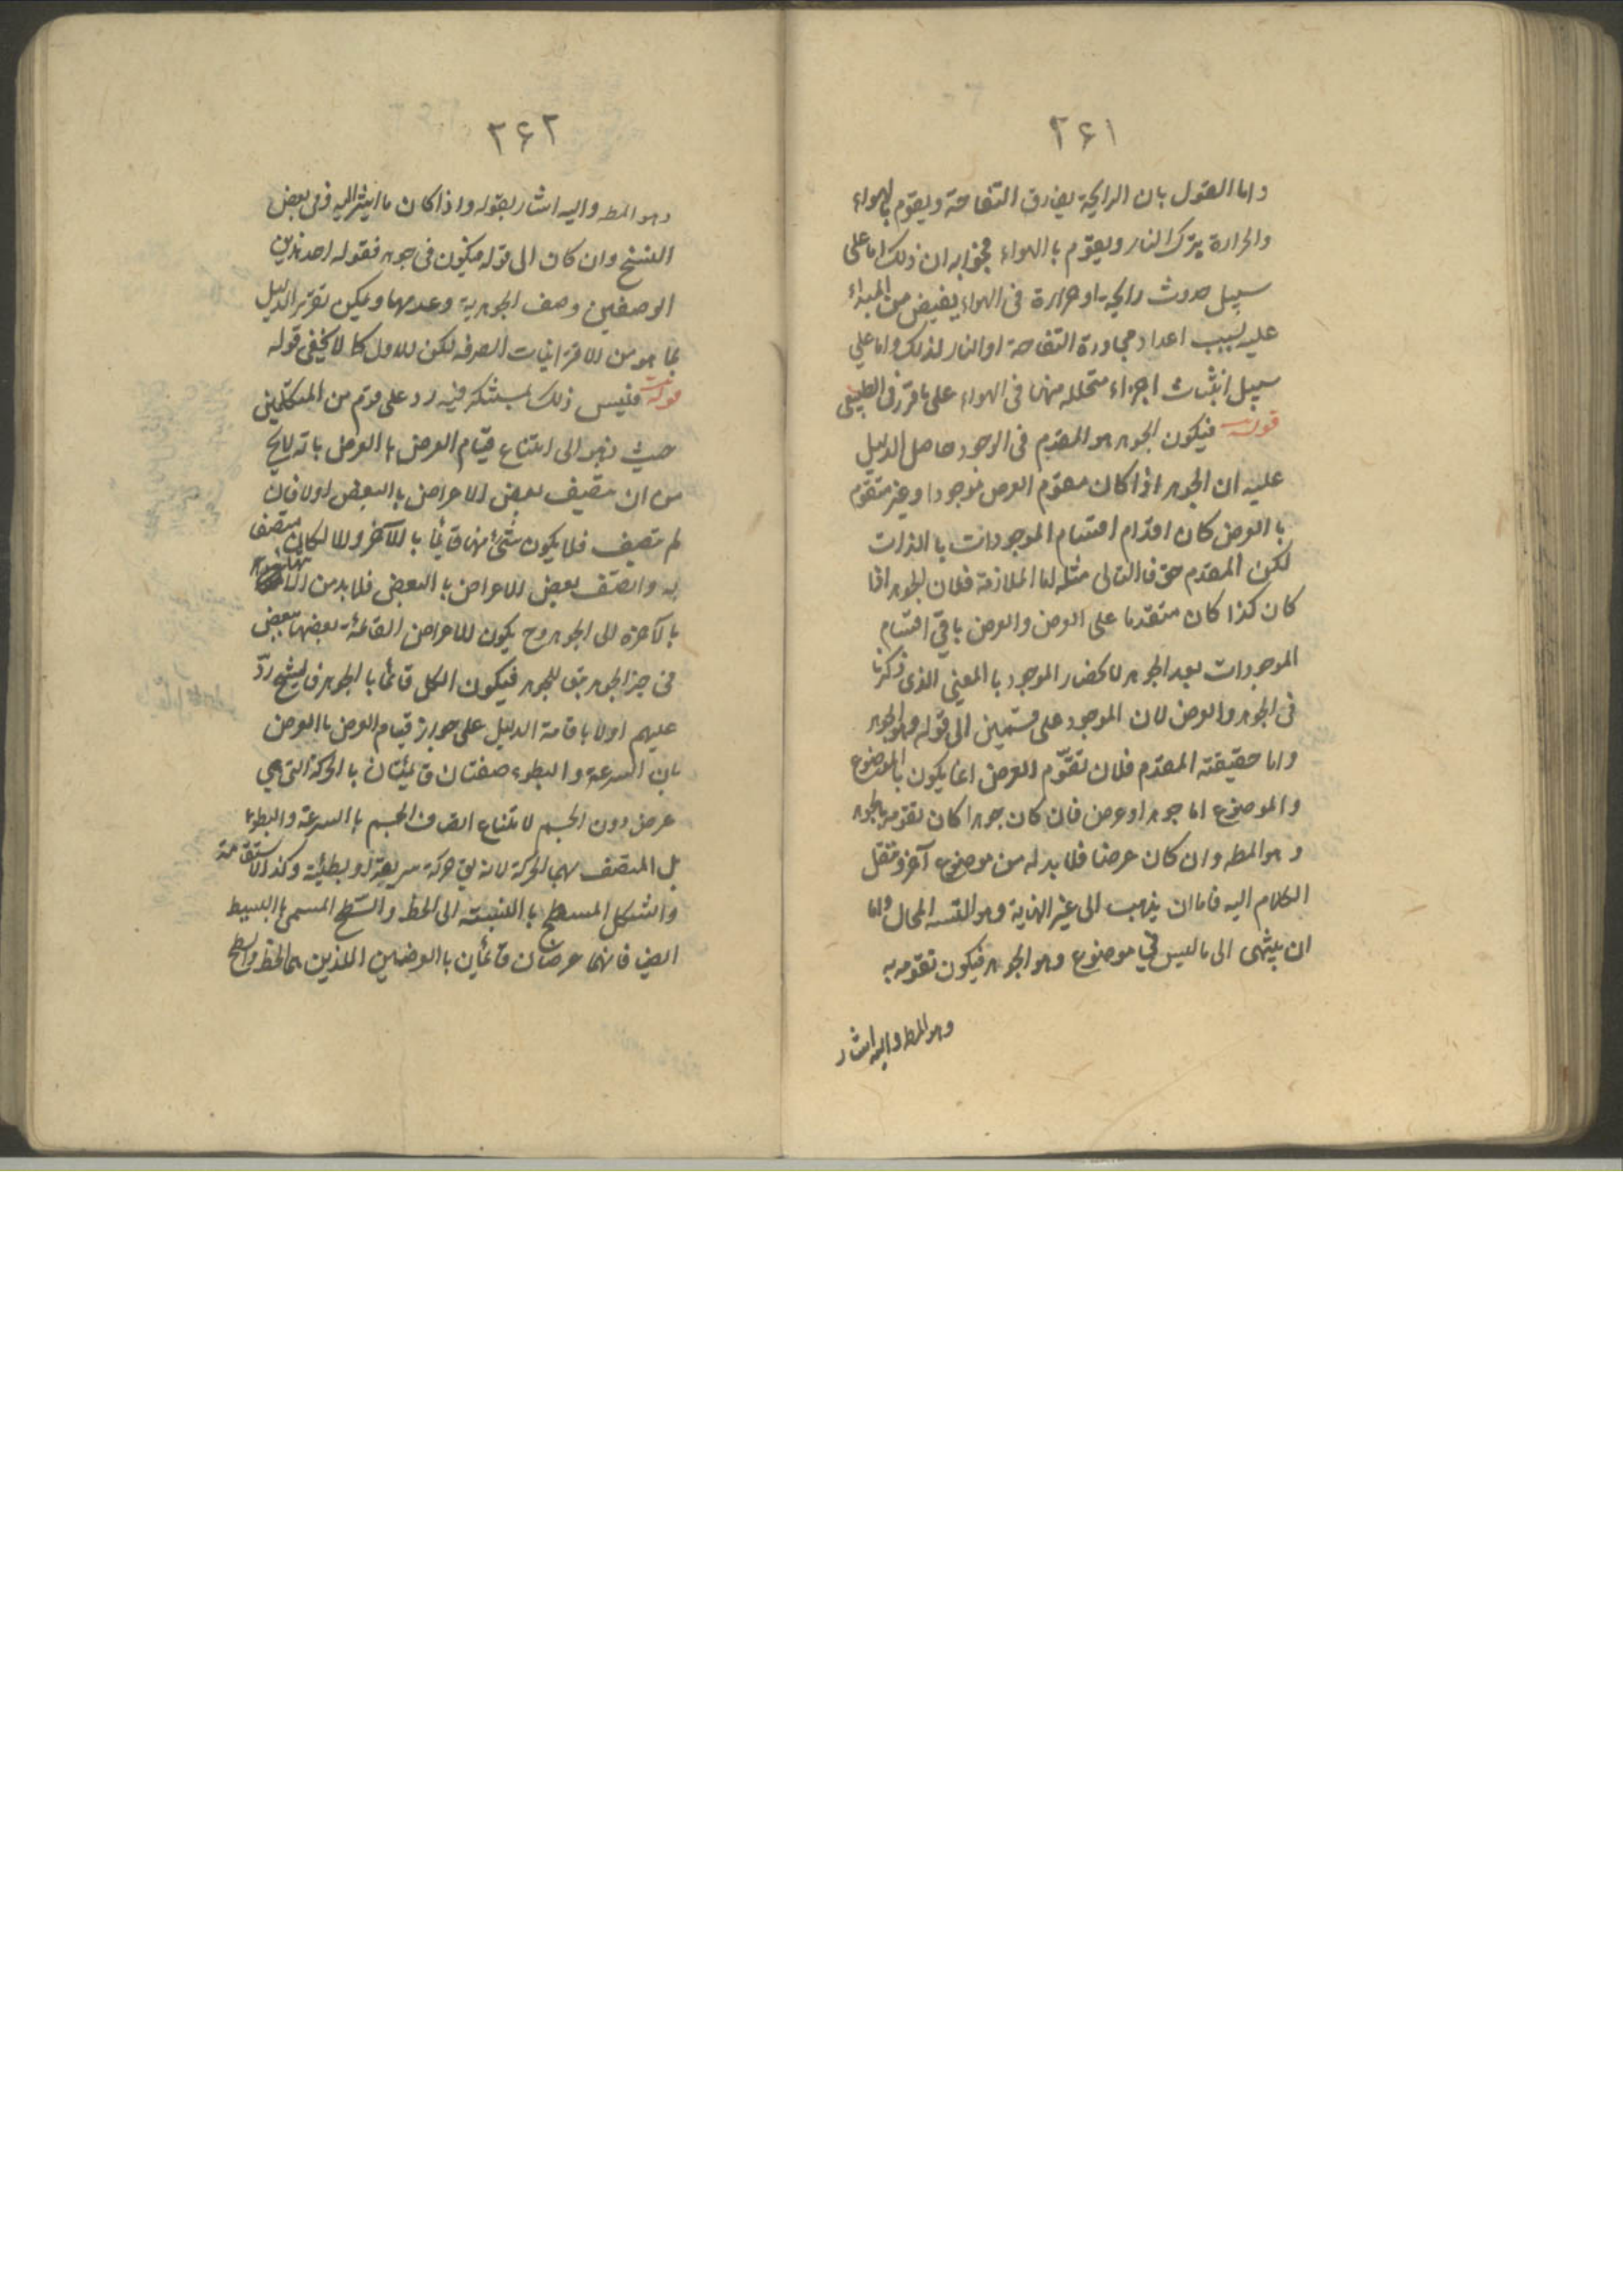 ٢۶١
واما القول بان الرايحة يفارق التفاحة ويقوم بالهواء
والحرارة يترك النار ويقوم با الهواء فجوابه ان ذلك اما على
سبيل حدوث رايحة او حرارة فى الهواء يفيض من المبداء
عليه بسبب اعداد مجاورة التفاحة او النار لذلك واما على
سبيل انبثاث اجزاء متحلله منهما فى الهواء على ما قرر فى الطبيعى
قوله فيكون الجوهر هو المقدم فى الوجود حاصل الدليل
عليه ان الجوهر اذا كان مقوم العرض موجودا وغير متقوم
با العرض كان اقدم اقسام الموجودات با الذات
لكن المقدم حق فالتالى مثله اما الملازمة فلان الجوهر اذا
كان كذا كان متقدما على العرض والعرض باقى اقسام
الموجودات بعد الجوهر لانحصار الموجود با المعنى الذى ذكرنا
فى الجوهر والعرض لان الموجود على قسمين الى قوله وهو الجوهر
واما حقيقته المقدم فلان تقوّم العرض انما يكون بالموضوع
والموضوع اما جوهر او عرض فان كان جوهرا كان تقومه بالجوهر
وهو المطه وان كان عرضا فلا بد له من موضوع آخر وننقل
الكلام اليه فاما ان يذهب الى غير النهاية وهو التسه المحال واما
ان ينتهى الى ما ليس فى موضوع وهو الجوهر فيكون تقومه به
وهو المطه واليه اشار
٢۶٢
وهو المطه واليه اشار بقوله واذا كان ما اشير اليه وفى بعض
النسخ وان كان الى قوله فيكون فى جوهر فقوله احد هذين
الوصفين وصف الجوهرية وعدمها ويمكن تقرير الدليل
بما هو من الاقترانيات الصرفه لكن للاول كما لا يخفى قوله
قوله فليس ذلك بمستنكر فيه رد على قوم من المتكلمين
حيث ذهبو الى امتناع قيام العرض با العرض بانه لا يخ
من ان يتصف بعض الاعراض با البعض اولا فان
لم يتصف فلا يكون شئ منها قائما با الآخر والا لكان متصفا
به وان اتصف بعض الاعراض با البعض فلا بد من انتهائها
بالآخرة الى الجوهر وح يكون الاعراض القائمة بعضها ببعض
فى حيز الجوهر تبعا للجوهر فيكون الكل قائما با الجوهر فالشيخ ردّ
عليهم اولا باقامة الدليل على جواز قيام العرض با العرض
بان السرعة والبطوء صفتان قائمتان با الحركة التى هى
عرض دون الجسم لامتناع اتصاف الجسم با السرعة والبطوء
بل المتصف بهما الحركة لانه يق حركة سريعة او بطيئة وكذا الاستقامة
والشكل المسطح با النسبة الى الخط والسطح المسمى با البسيط
ايض فانهما عرضان قائمان با العرضين اللذين هما الخط والسطح